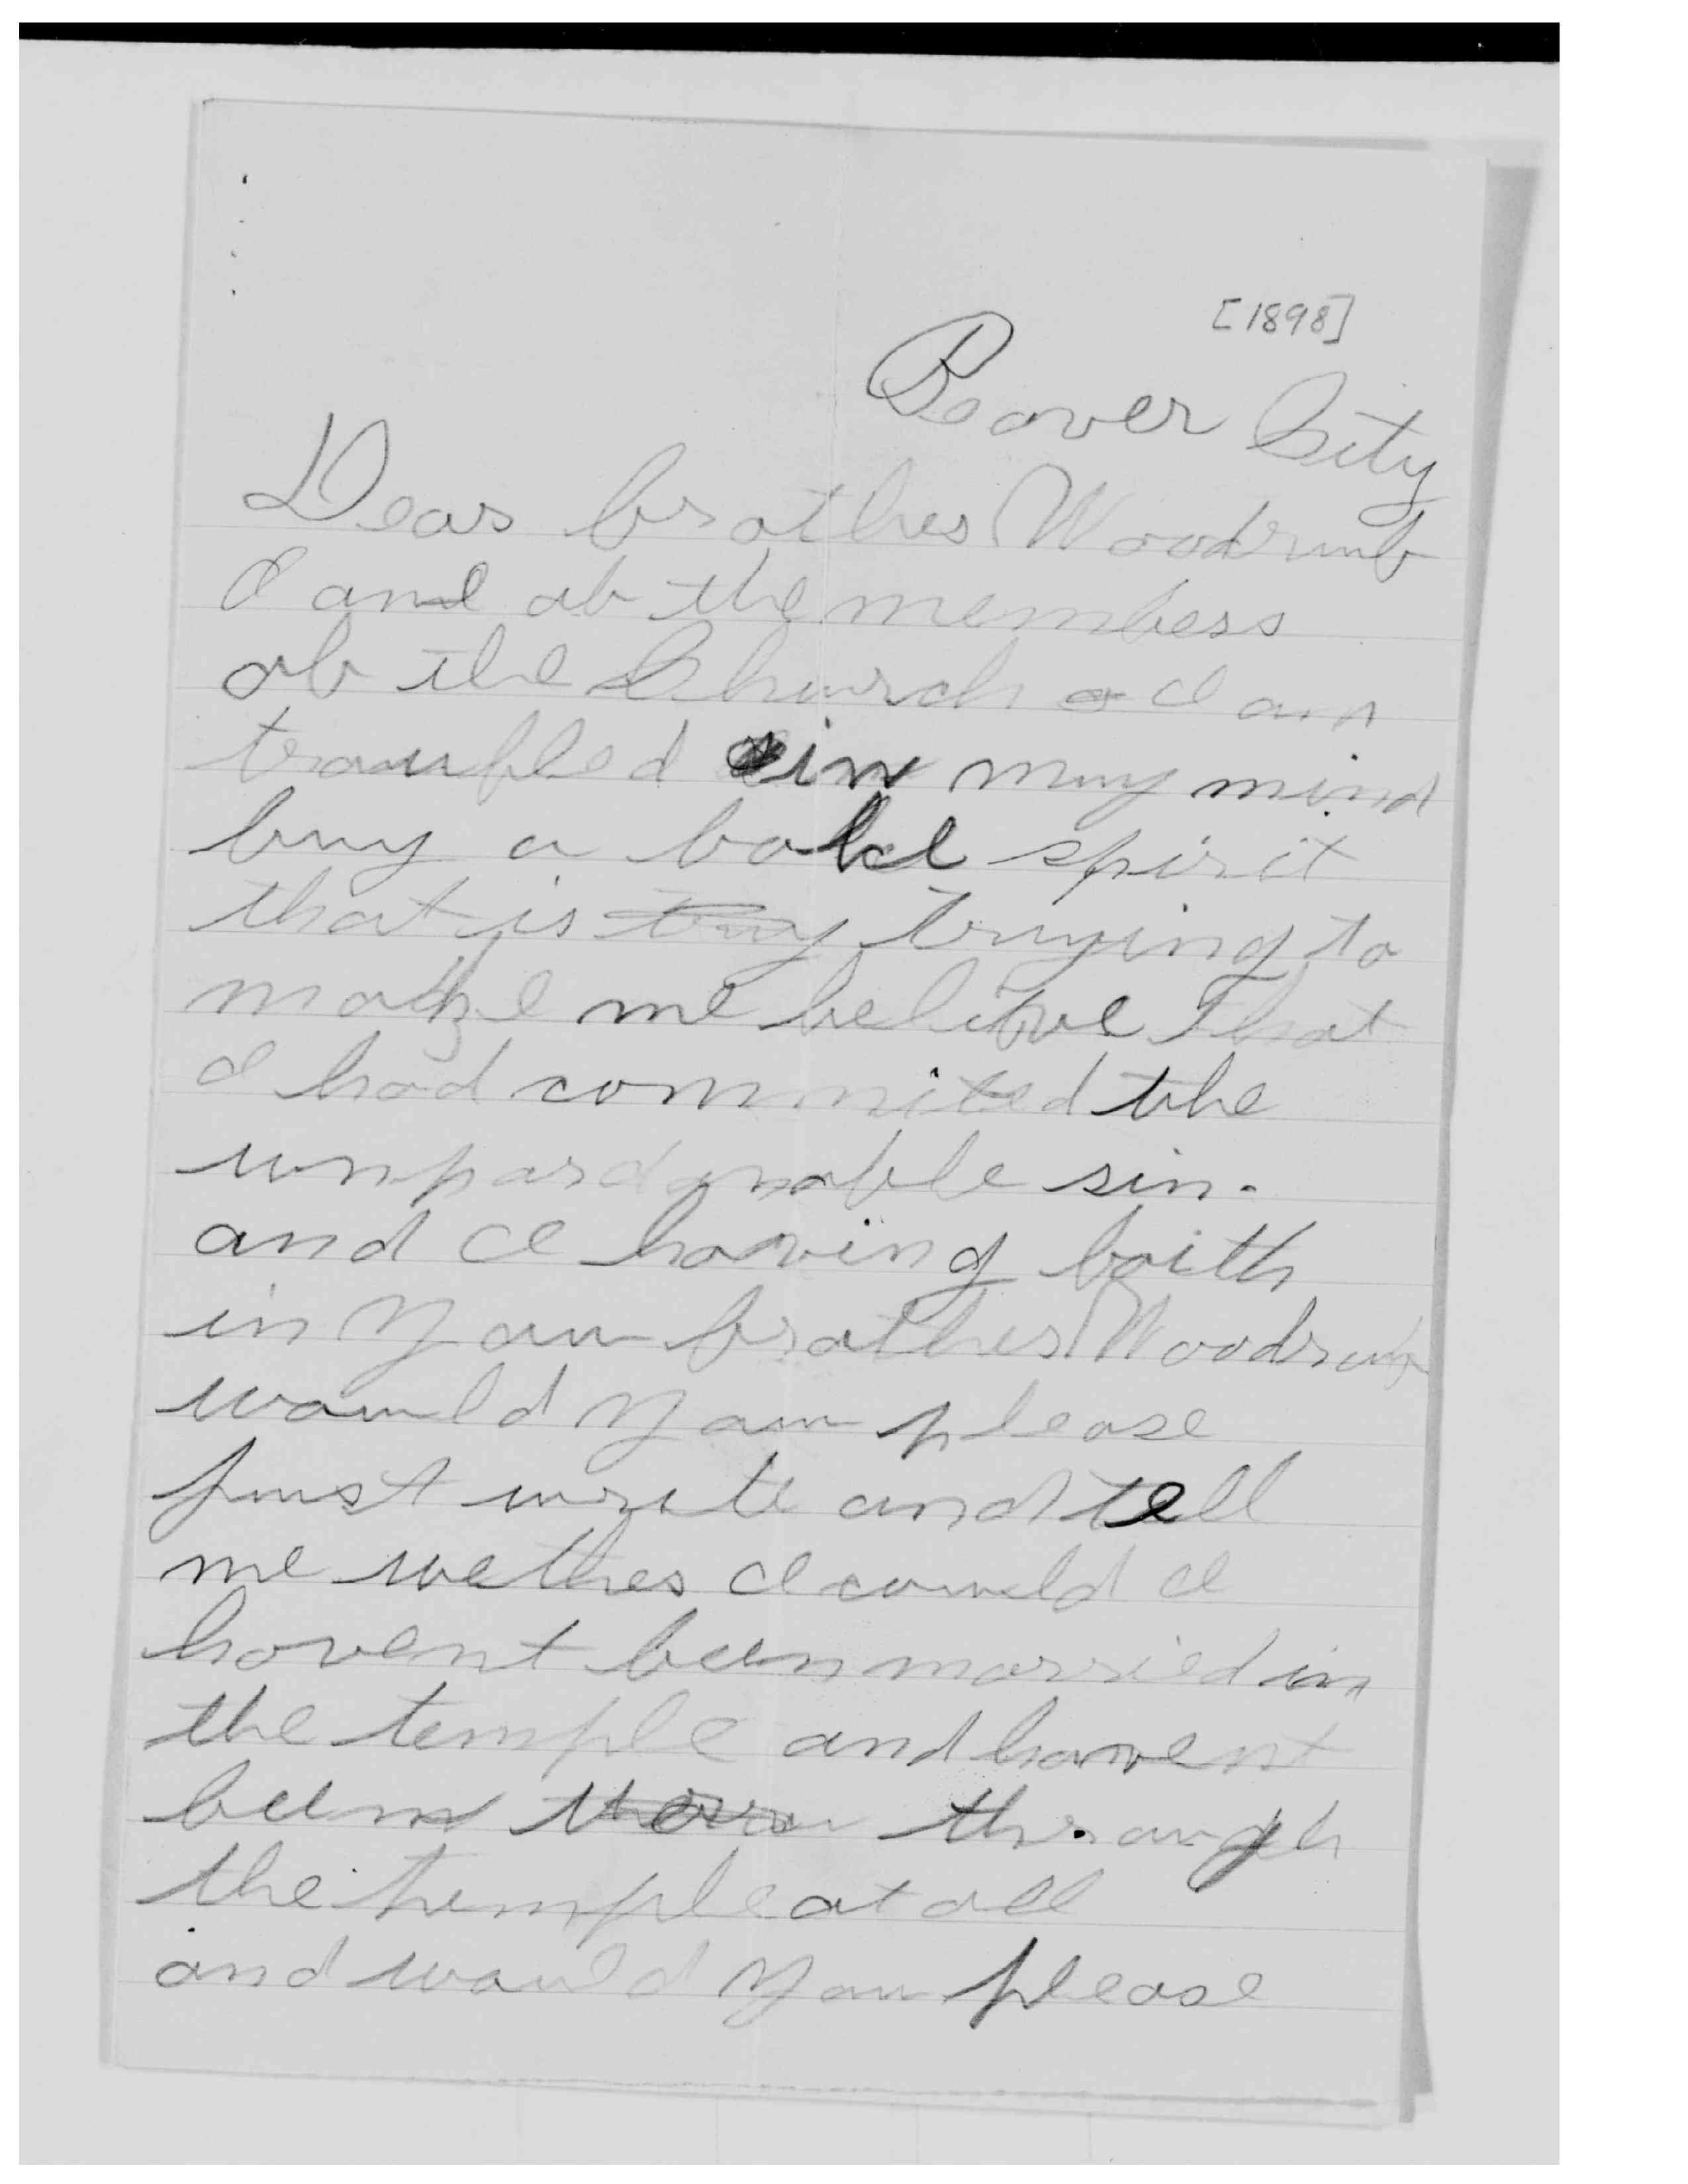 [1898]
Beaver City
Dear brother Woodruf
I am of the members
of the Church I am
troubled in my mind
buy a bad spirit
that is truy truying to
make me believe that
I had commited the
unpardonable sin.
and I having faith
in you brother Woodruf
would you please
just write and tell
me wether I could I
havent been married in
the temple and havent
been through
the temple at all
and would you please